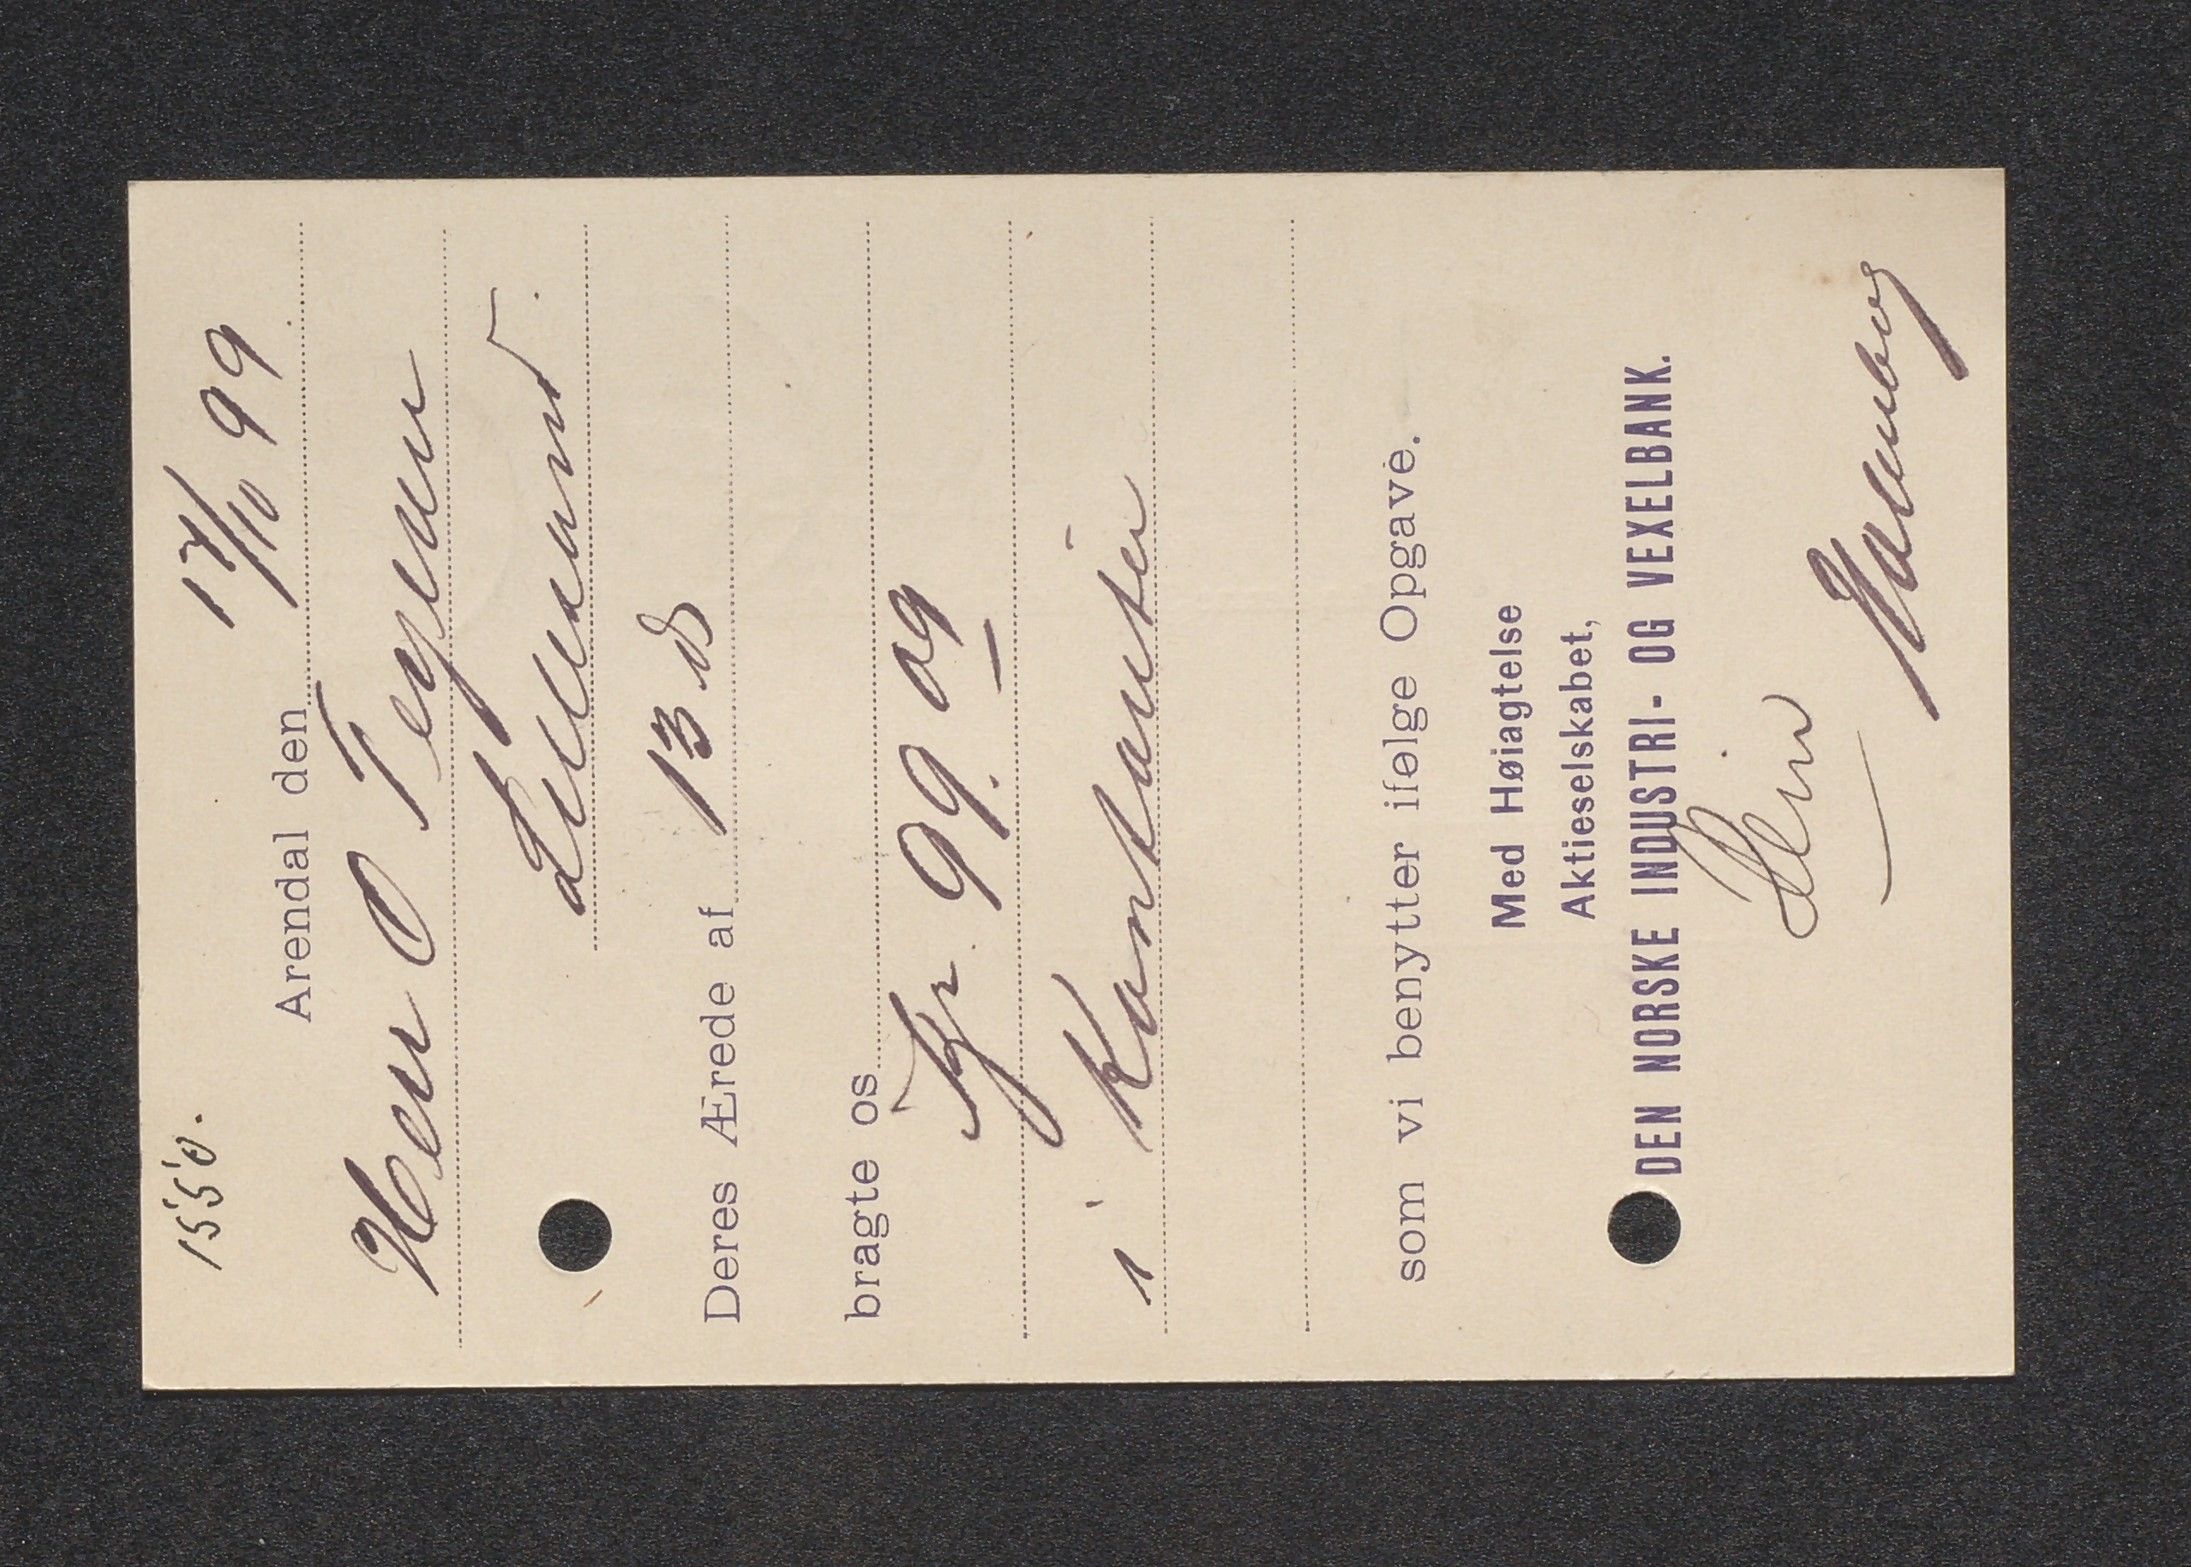 1550.
Arendal den 17/10 99
Herr O Terjesen
Lillesand.
Deres Ærede af 13 ds
bragte os
Kr. 99. 09
i Kontanter
som vi benytter ifølge Opgave.
Med Høiagtelse
Aktieselskabet,
DEN NORSKE INDUSTRI- OG VEXELBANK.